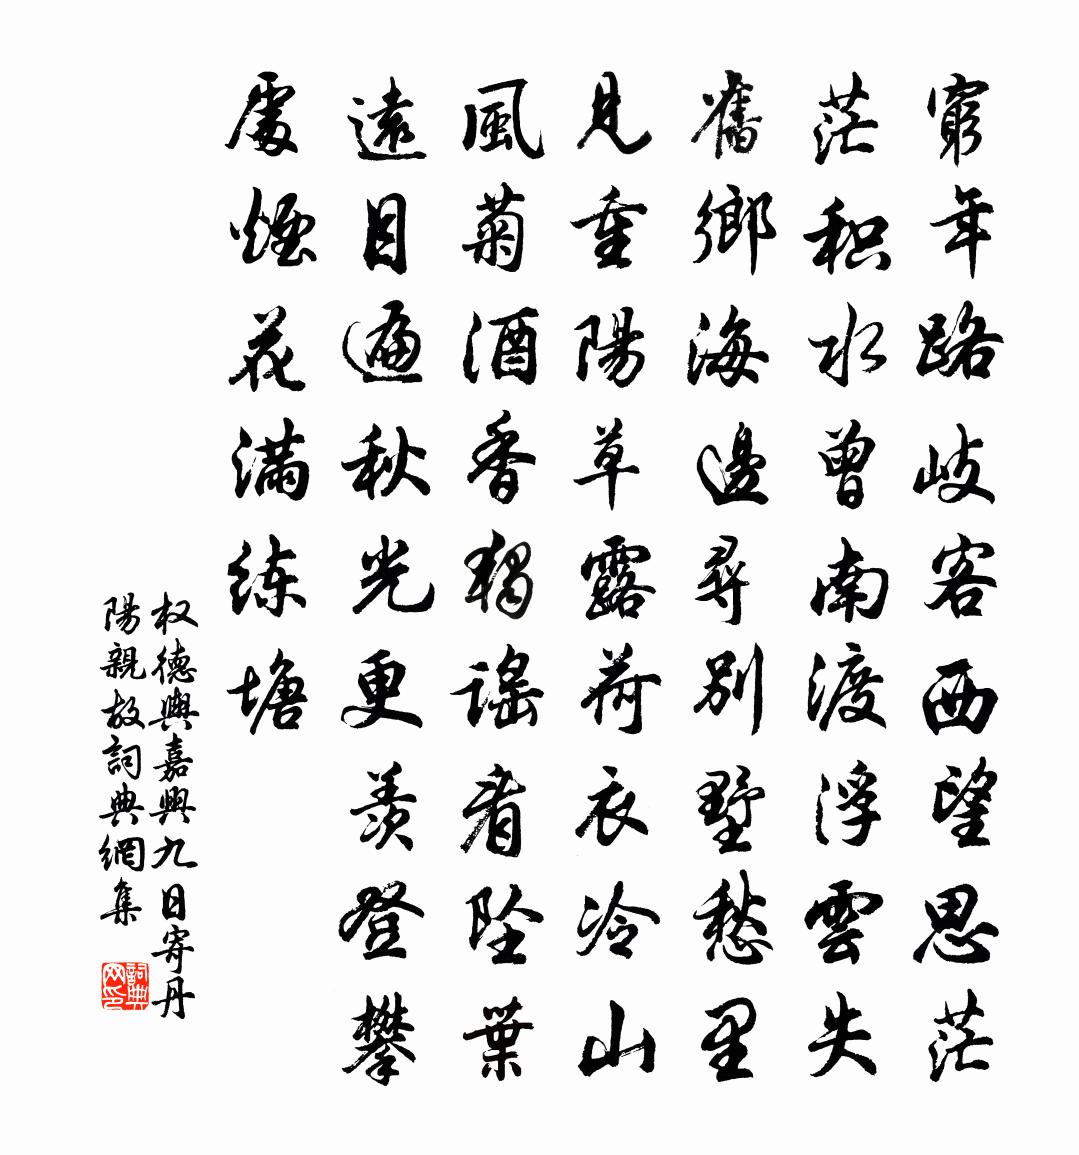 窮年路岐客西望思茫
茫积水曾南渡浮雲失
舊鄉海邊尋別墅愁里
見重陽草露荷衣冷山
風菊酒香獨謠看墜葉
遠目遍秋光更羨登攀
處煙花滿练塘
权德輿嘉興九日寄丹
陽親故詞典網集
詞典网印